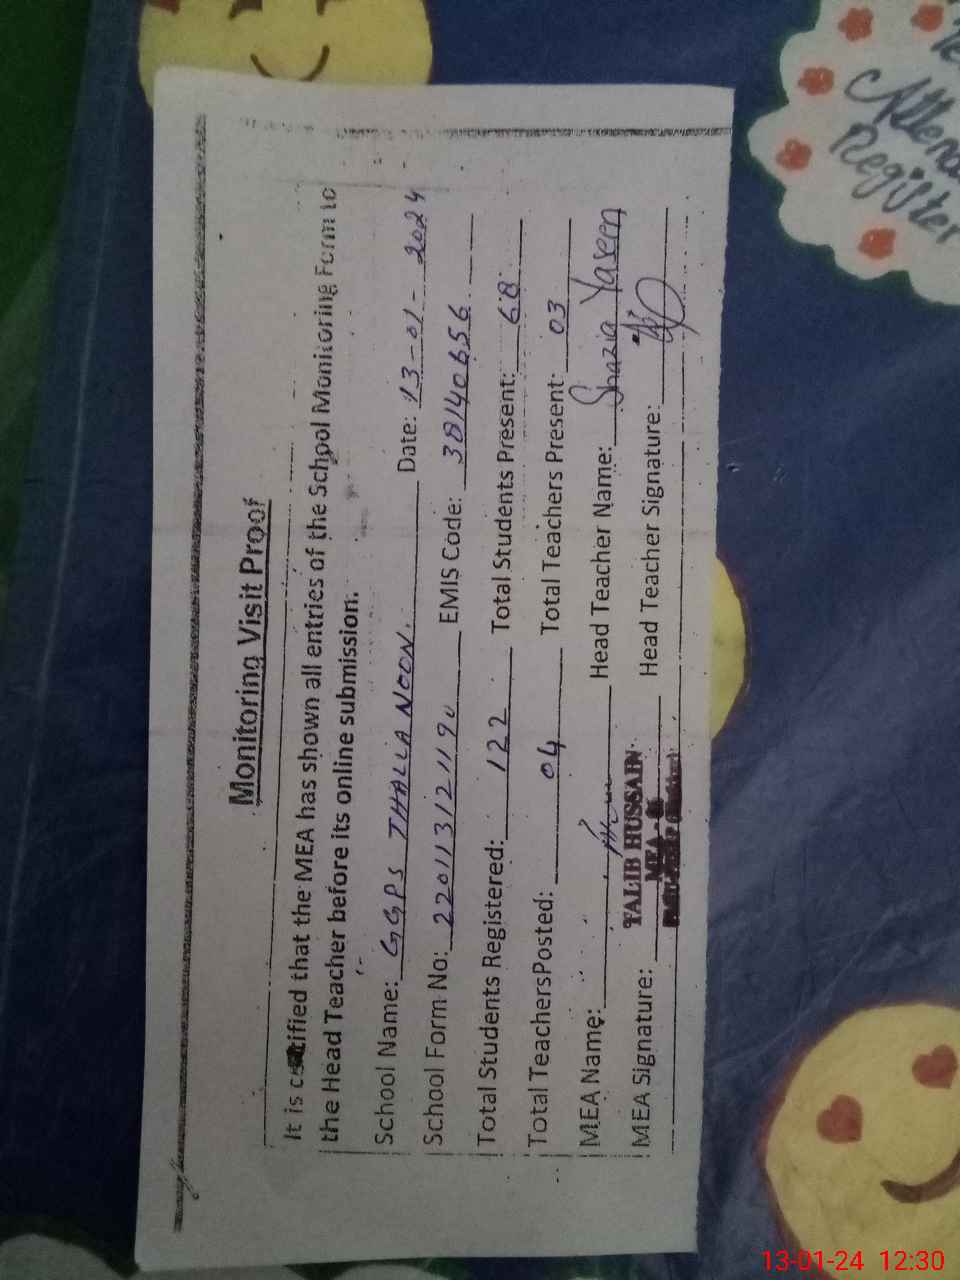 Monitoring Visit Proof
It is certified that the MEA has shown all entries of the School Monitoring Form to
the Head Teacher before its online submission.
School Name: GGPS THALLA NOON. Date: 13-01-2024
School Form No: 220113121190 EMIS Code: 38140656
Total Students Registered: 122 Total Students Present: 68
Total TeachersPosted: 04 Total Teachers Present: 03
MEA Name: Head Teacher Name: Shazia Yaseen
MEA Signature: Head Teacher Signature:
TALIB HUSSAIN
MEA
Register
13-01-24 12:30